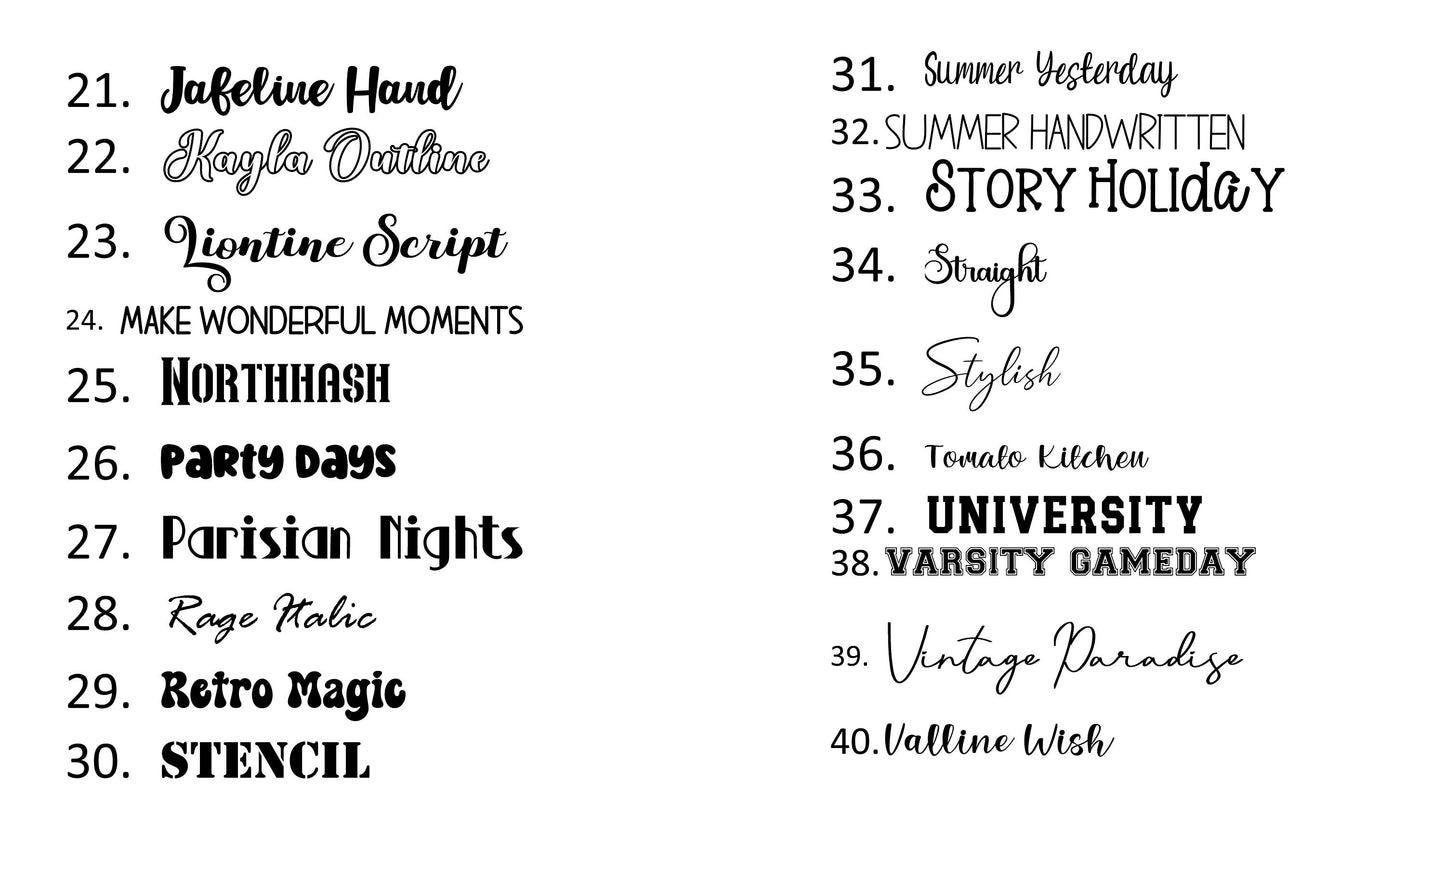 21. Jafeline Hand
22. Kayla Outline
23. Liontine Script
24. MAKE WONDERFUL MOMENTS
25. NORTHHASH
26. PaRty Days
27. Parisian Nights
28. Rage Italic
29. Retro Magic
30. STENCIL
31. Summer Yesterday
32. SUMMER HANDWRITTEN
33. STORY HOLIdaY
34. Straight
35. Stylish
36. Tomato Kitchen
37. UNIVERSITY
38. VARSITY GAMEDAY
39. Vintage Paradise
40. Valline Wish